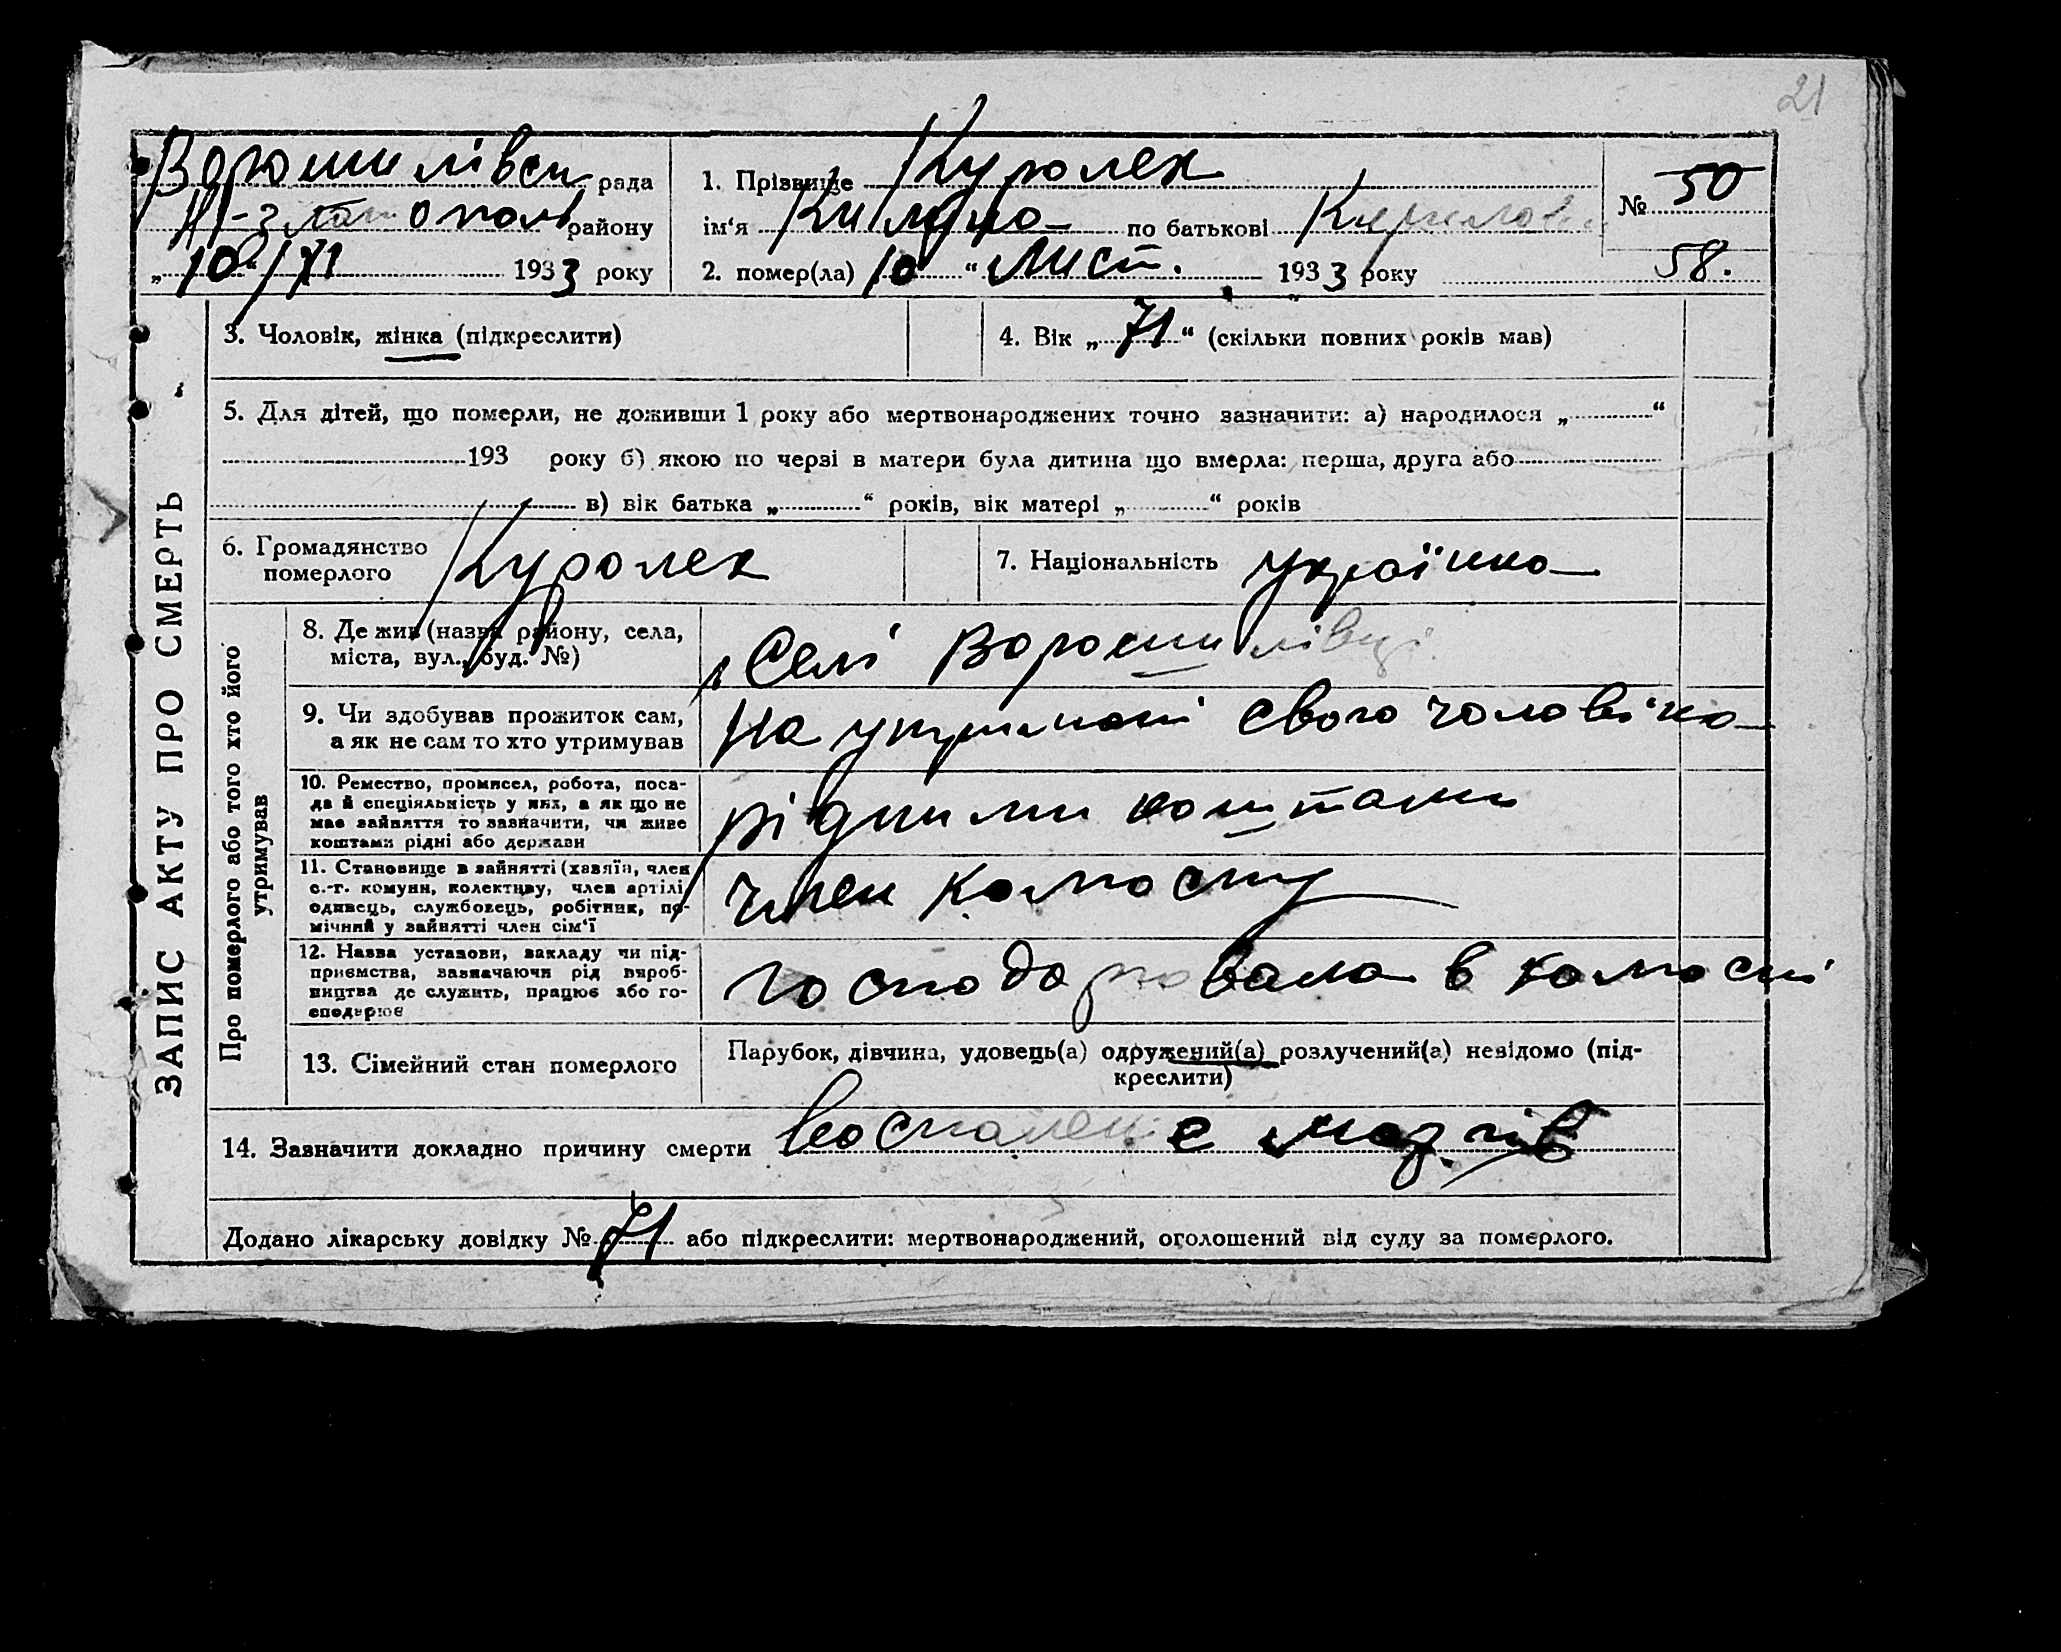 21
Ворошилівськ рада
Н-златополь району
„10“ /XI 1933 року
1. Прізвище Куролех
ім‘я по батькові
№ 50
2. помер(ла) 10 “ Лист. 1933 року 58.
ЗАПИС АКТУ ПРО СМЕРТЬ
3. Чоловік, жінка (підкреслити)
4. Вік „ 71 “ (скільки повних років мав)
5. Для дітей, що померли, не доживши 1 року або мертвонароджених точно зазначити: а) народилося „ “
193 року б) якою по черзі в матери була дитина що вмерла: перша, друга або
в) вік батька „ “ років, вік матері „ “ років
6. Громадянство
померлого Куролех
7. Національність українка
Про померлого або того хто його
утримував
8. Де жив (назва району, села,
міста, вул., буд. №)
Селі Ворошилівці
9. Чи здобував прожиток сам,
а як не сам то хто утримував
На утримані свого чоловіка
10. Ремество, промисел, робота, поса-
да й спеціяльність у них, а як що не
має зайняття то зазначити, чи живе
коштами рідні або держави
рідними коштами
11. Становище в зайнятті (хазяїн, член
с.-г. комуни, колективу, член артілі
одинець, службовець, робітник, по-
мічний у зайнятті член сім‘ї
член колгоспу
12. Назва установи, закладу чи під-
приємства, зазначаючи рід вироб-
ництва де служить, працює або го-
сподарює
господарювала в колгоспі
13. Сімейний стан померлого
Парубок, дівчина, удовець(а) одружений(а) розлучений(а) невідомо (під-
креслити)
14. Зазначити докладно причину смерти воспаленіе мозгів
Додано лікарську довідку № 71 або підкреслити: мертвонароджений, оголошений від суду за померлого.